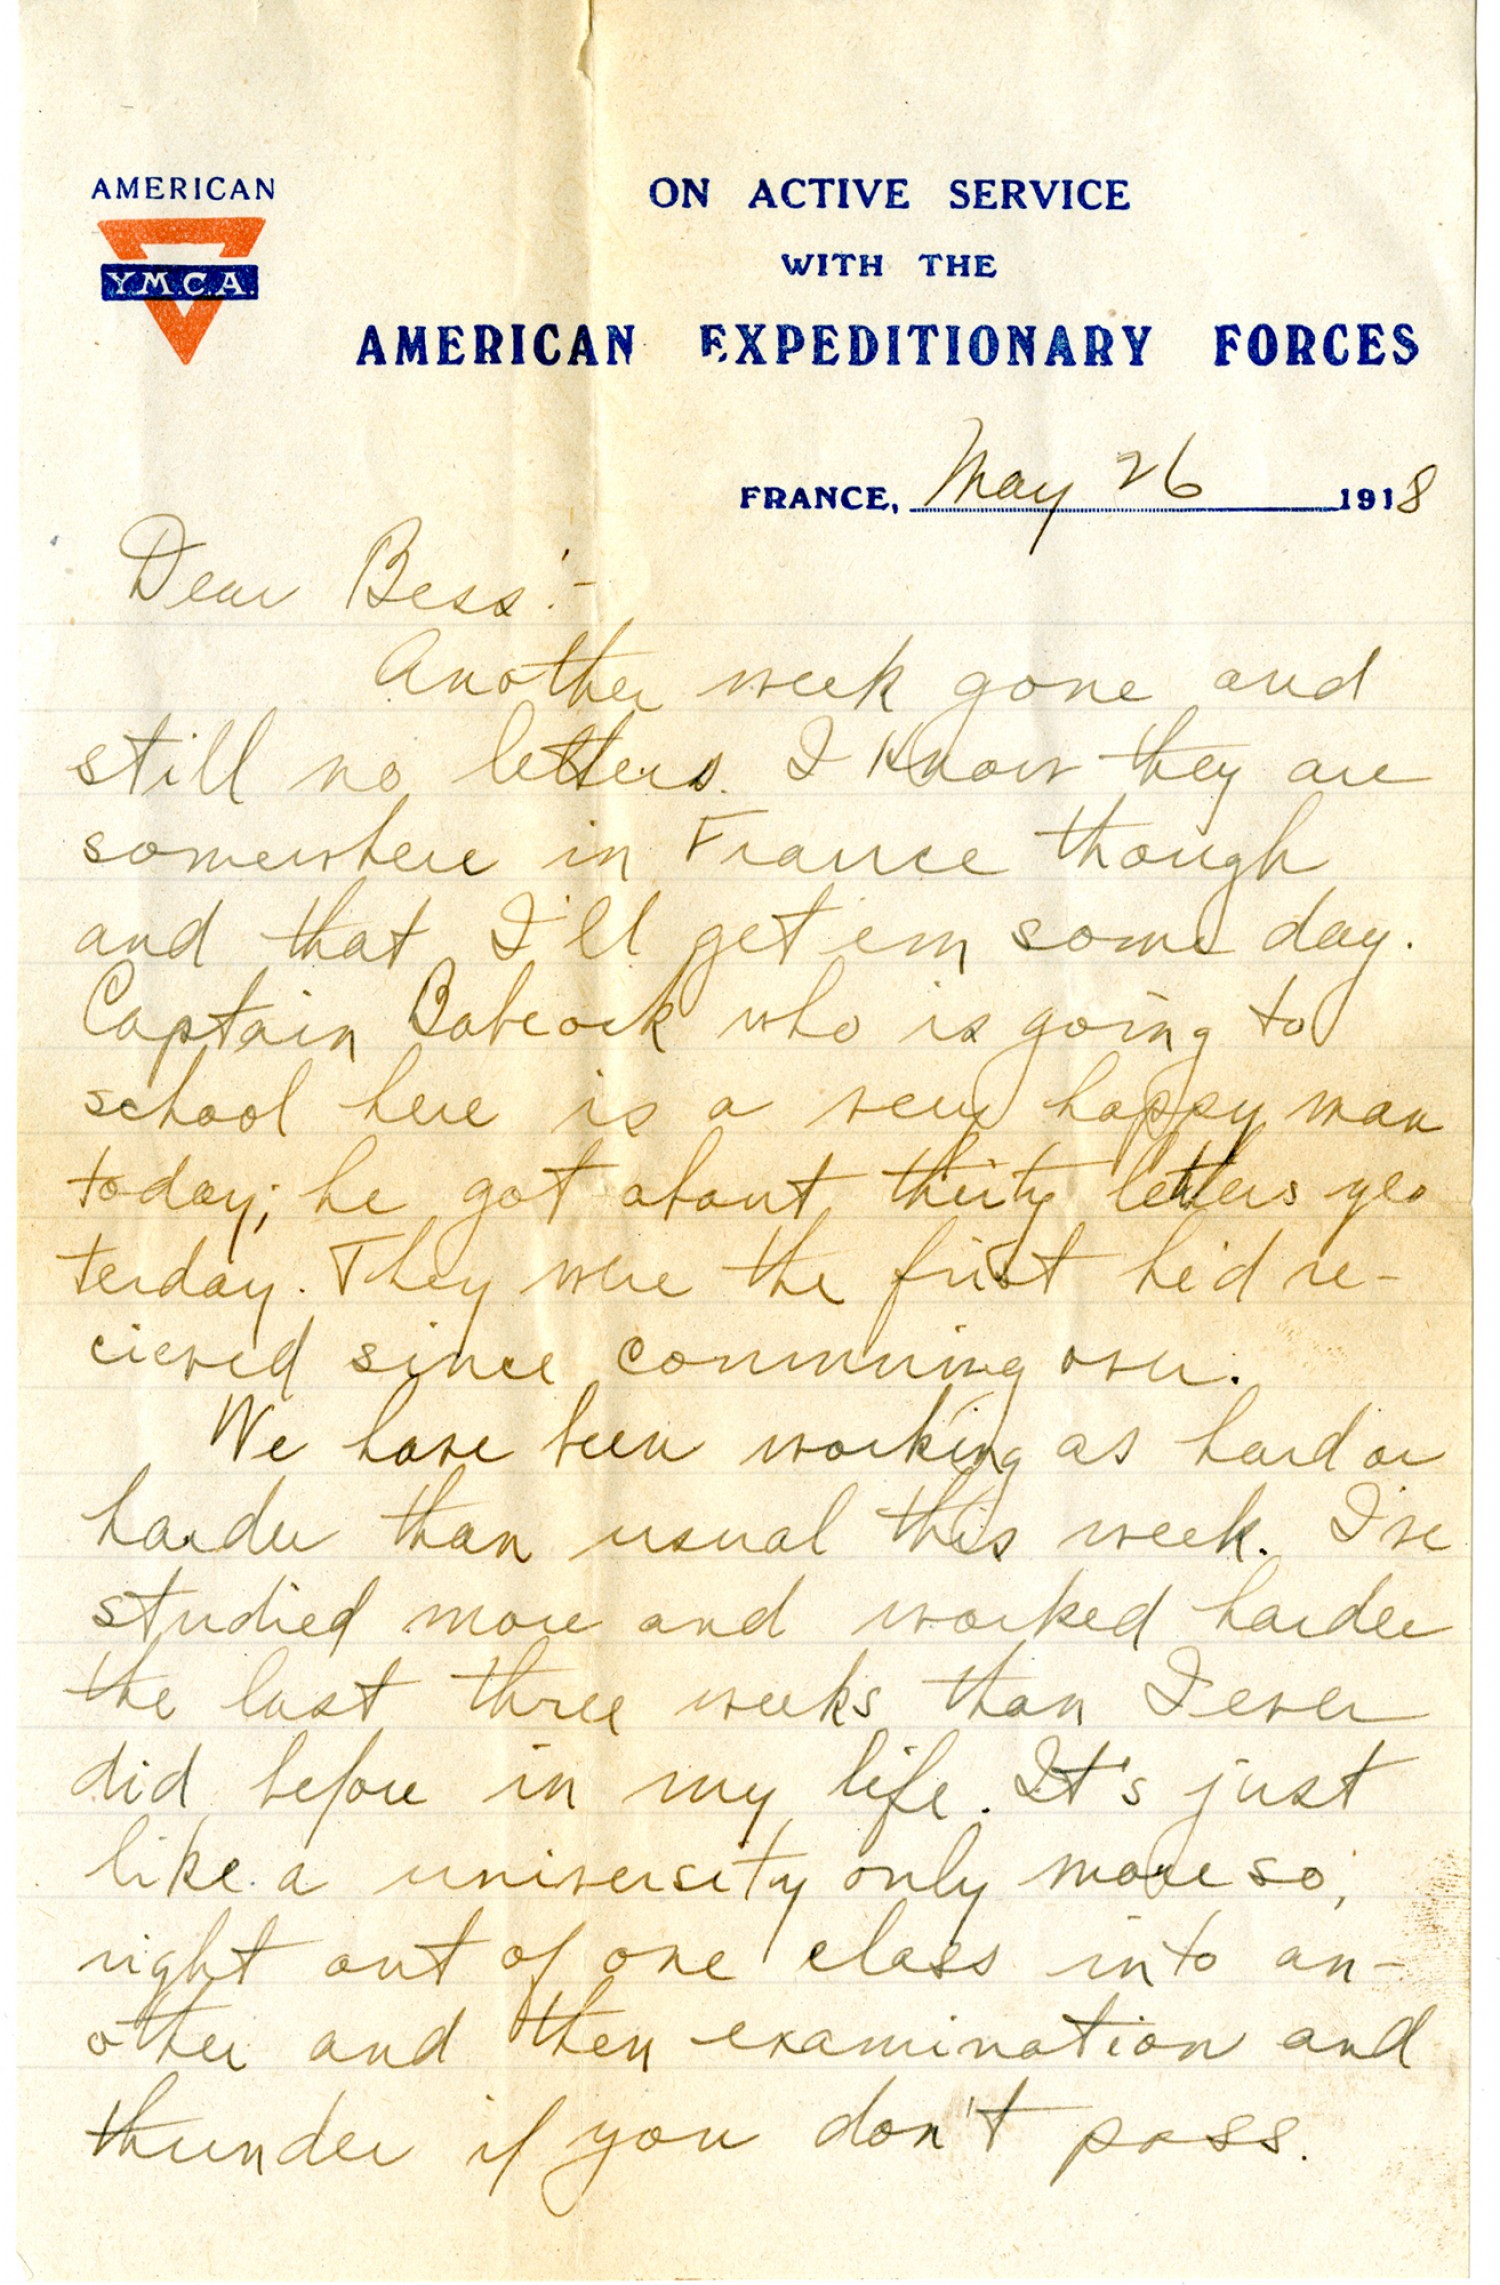 AMERICAN
Y.M.C.A.
ON ACTIVE SERVICE
WITH THE
AMERICAN EXPEDITIONARY FORCES
FRANCE, May 26 1918
Dear Bess:-
Another week gone and
still no letters. I know they are
somewhere in France though
and that I'll get em some day.
Captain Babcock who is going to
school here is a very happy man
today; he got about thirty letters yes
terday. They were the first he'd re-
cieved since comming over.
We have been working as hard or
harder than usual this week. I've
studied more and worked harder
the last three weeks than I ever
did before in my life. It's just
like a university only more so,
right out of one class into an-
other and then examination and
thunder if you don't pass.